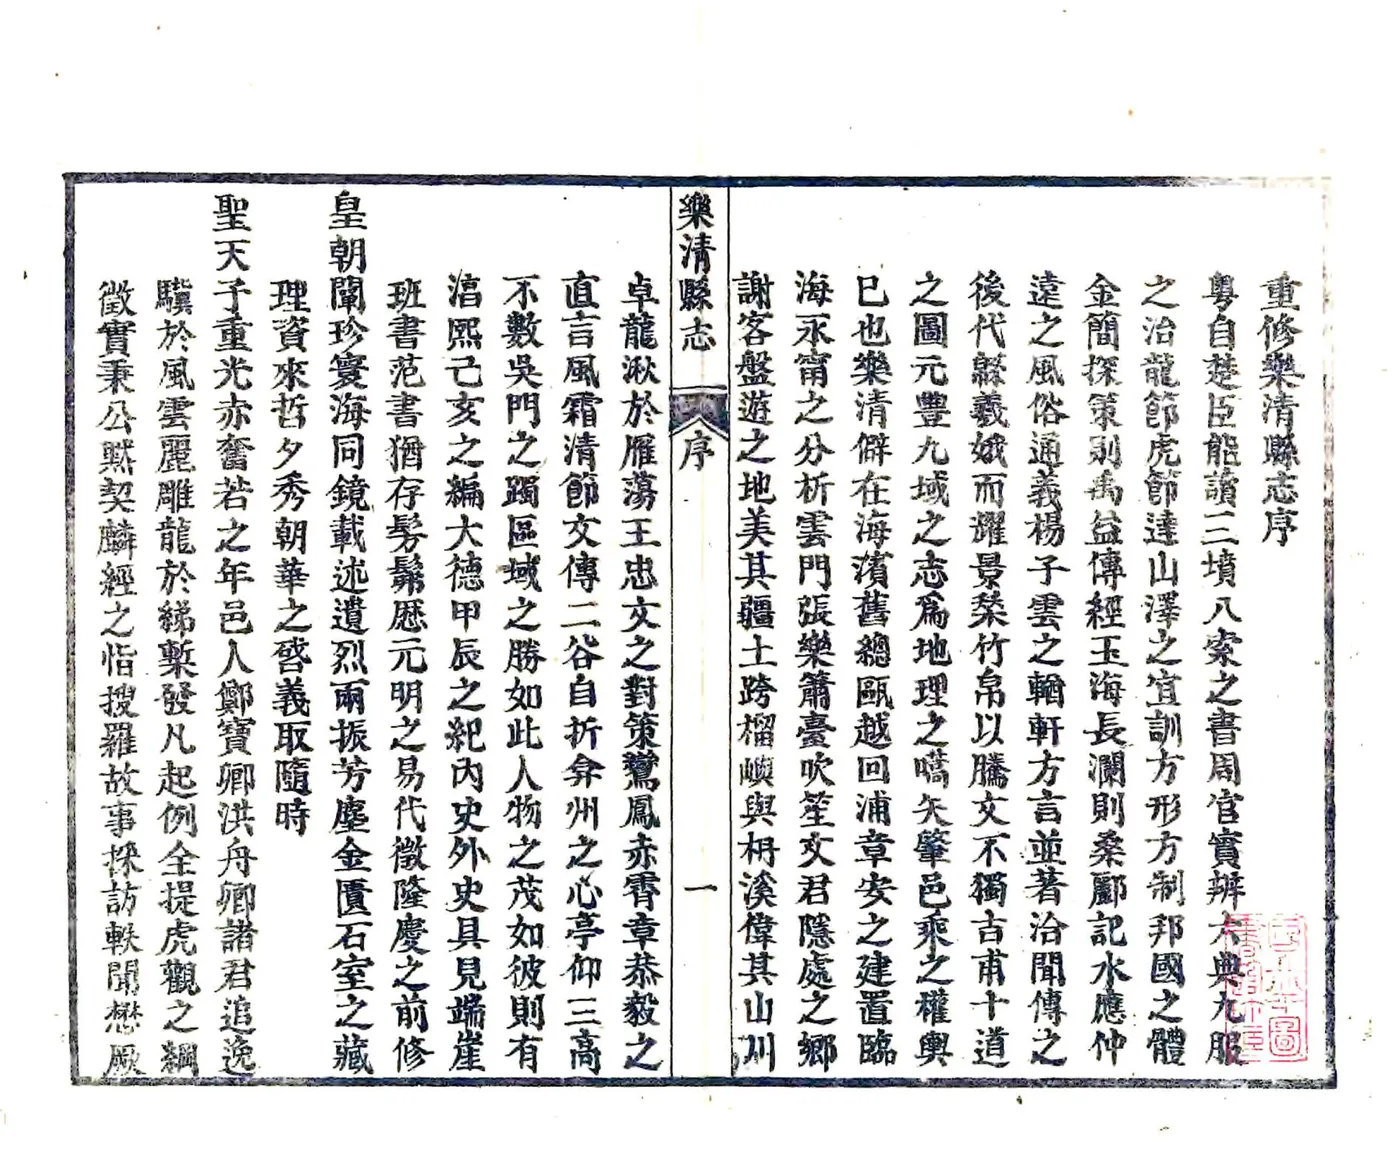 重修樂清縣志序
粵自楚臣能讀三墳八索之書周官實辨六典九服
之治龍節虎節達山澤之宜訓方形方制邦國之體
金簡探策則禹益傳經玉海長瀾則桑酈記水應仲
遠之風俗通義楊子雲之輶軒方言並著洽聞傳之
後代繇羲娥而耀景棻竹帛以騰文不獨吉甫十道
之圖元豐九域之志爲地理之嚆矢肇邑乘之權輿
已也樂清僻在海濱舊總甌越回浦章安之建置臨
海永甯之分析雲門張樂簫臺吹笙文君隱處之鄉
謝客盤遊之地美其疆土跨榴嶼與枏溪偉其山川
樂清縣志
序
一
卓龍湫於雁蕩王忠文之對策鸞鳳赤霄章恭毅之
直言風霜清節文傳二谷自折弇州之心亭仰三高
不數吳門之躅區域之勝如此人物之茂如彼則有
淐熙己亥之編大德甲辰之紀內史外史具見端崖
班書范書猶存髣髴歷元明之易代徵隆慶之前修
皇朝闡珍寰海同鏡載述遺烈兩振芳塵金匱石室之藏
理資來哲夕秀朝華之啓義取隨時
聖天子重光赤奮若之年邑人鄭寶卿洪舟卿諸君追逸
驥於風雲麗雕龍於綈槧發凡起例全提虎觀之綱
徵實秉公默契麟經之恉搜羅故事採訪軼聞懋厥